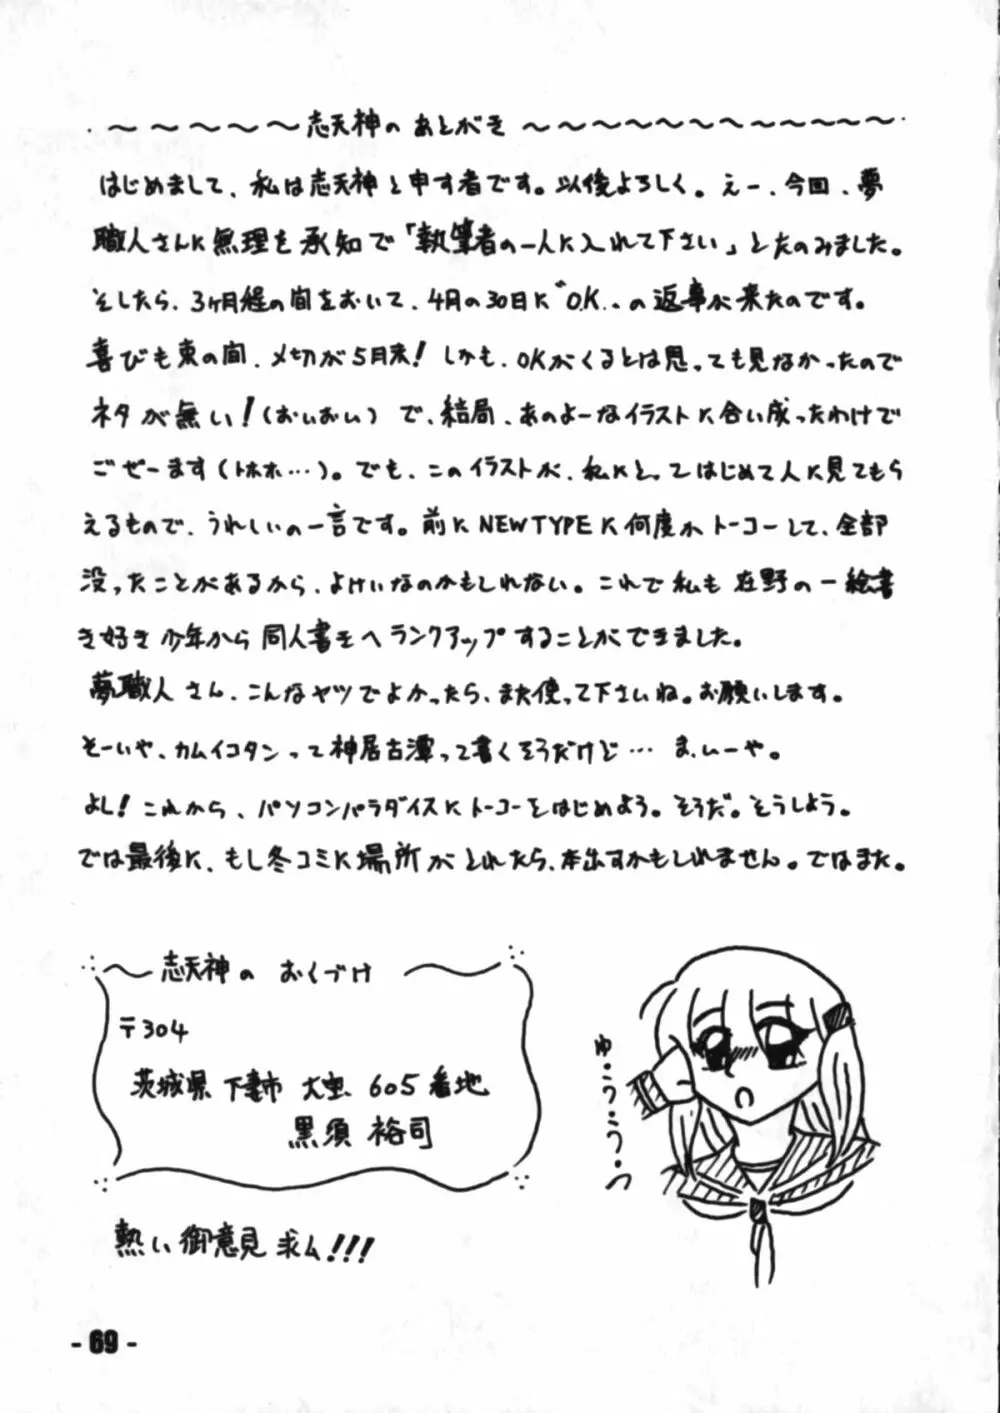 志天神のあとがき
はじめまして、私は志天神と申す者です。以後よろしく。えー、今回、夢
職人さんに無理を承知で「執筆者の一人に入れて下さい」とたのみました。
そしたら、3ヶ月程の間をおいて、4月の30日に〝O.K.〟の返事が来たのです。
喜びも束の間、〆切が5月末！しかも、OKがくるとは思っても見なかったので
ネタが無い！（おいおい）で、結局、あのよーなイラストに合い成ったわけで
ごぜーます（トホホ…）。でも、このイラストが、私にとってはじめて人に見てもら
えるもので、うれしいの一言です。前にNEWTYPEに何度かトーコーして、全部
没ったことがあるから、よけいなのかもしれない。これで私も在野の一絵書
き好き少年から同人書きへランクアップすることができました。
夢職人さん、こんなヤツでよかったら、また使って下さいね。お願いします。
そーいや、カムイコタンって神居古潭って書くそうだけど…ま、いーや。
よし！これから、パソコンパラダイスにトーコーをはじめよう。そうだ。そうしよう。
では最後に、もし冬コミに場所がとれたら、本出すかもしれません。ではまた。
志天神の おくづけ
〒304
茨城県 下妻市 大宝 605番地
黒須 裕司
熱い御意見求ム!!!
ゆ・う・う・つ
- 69 -